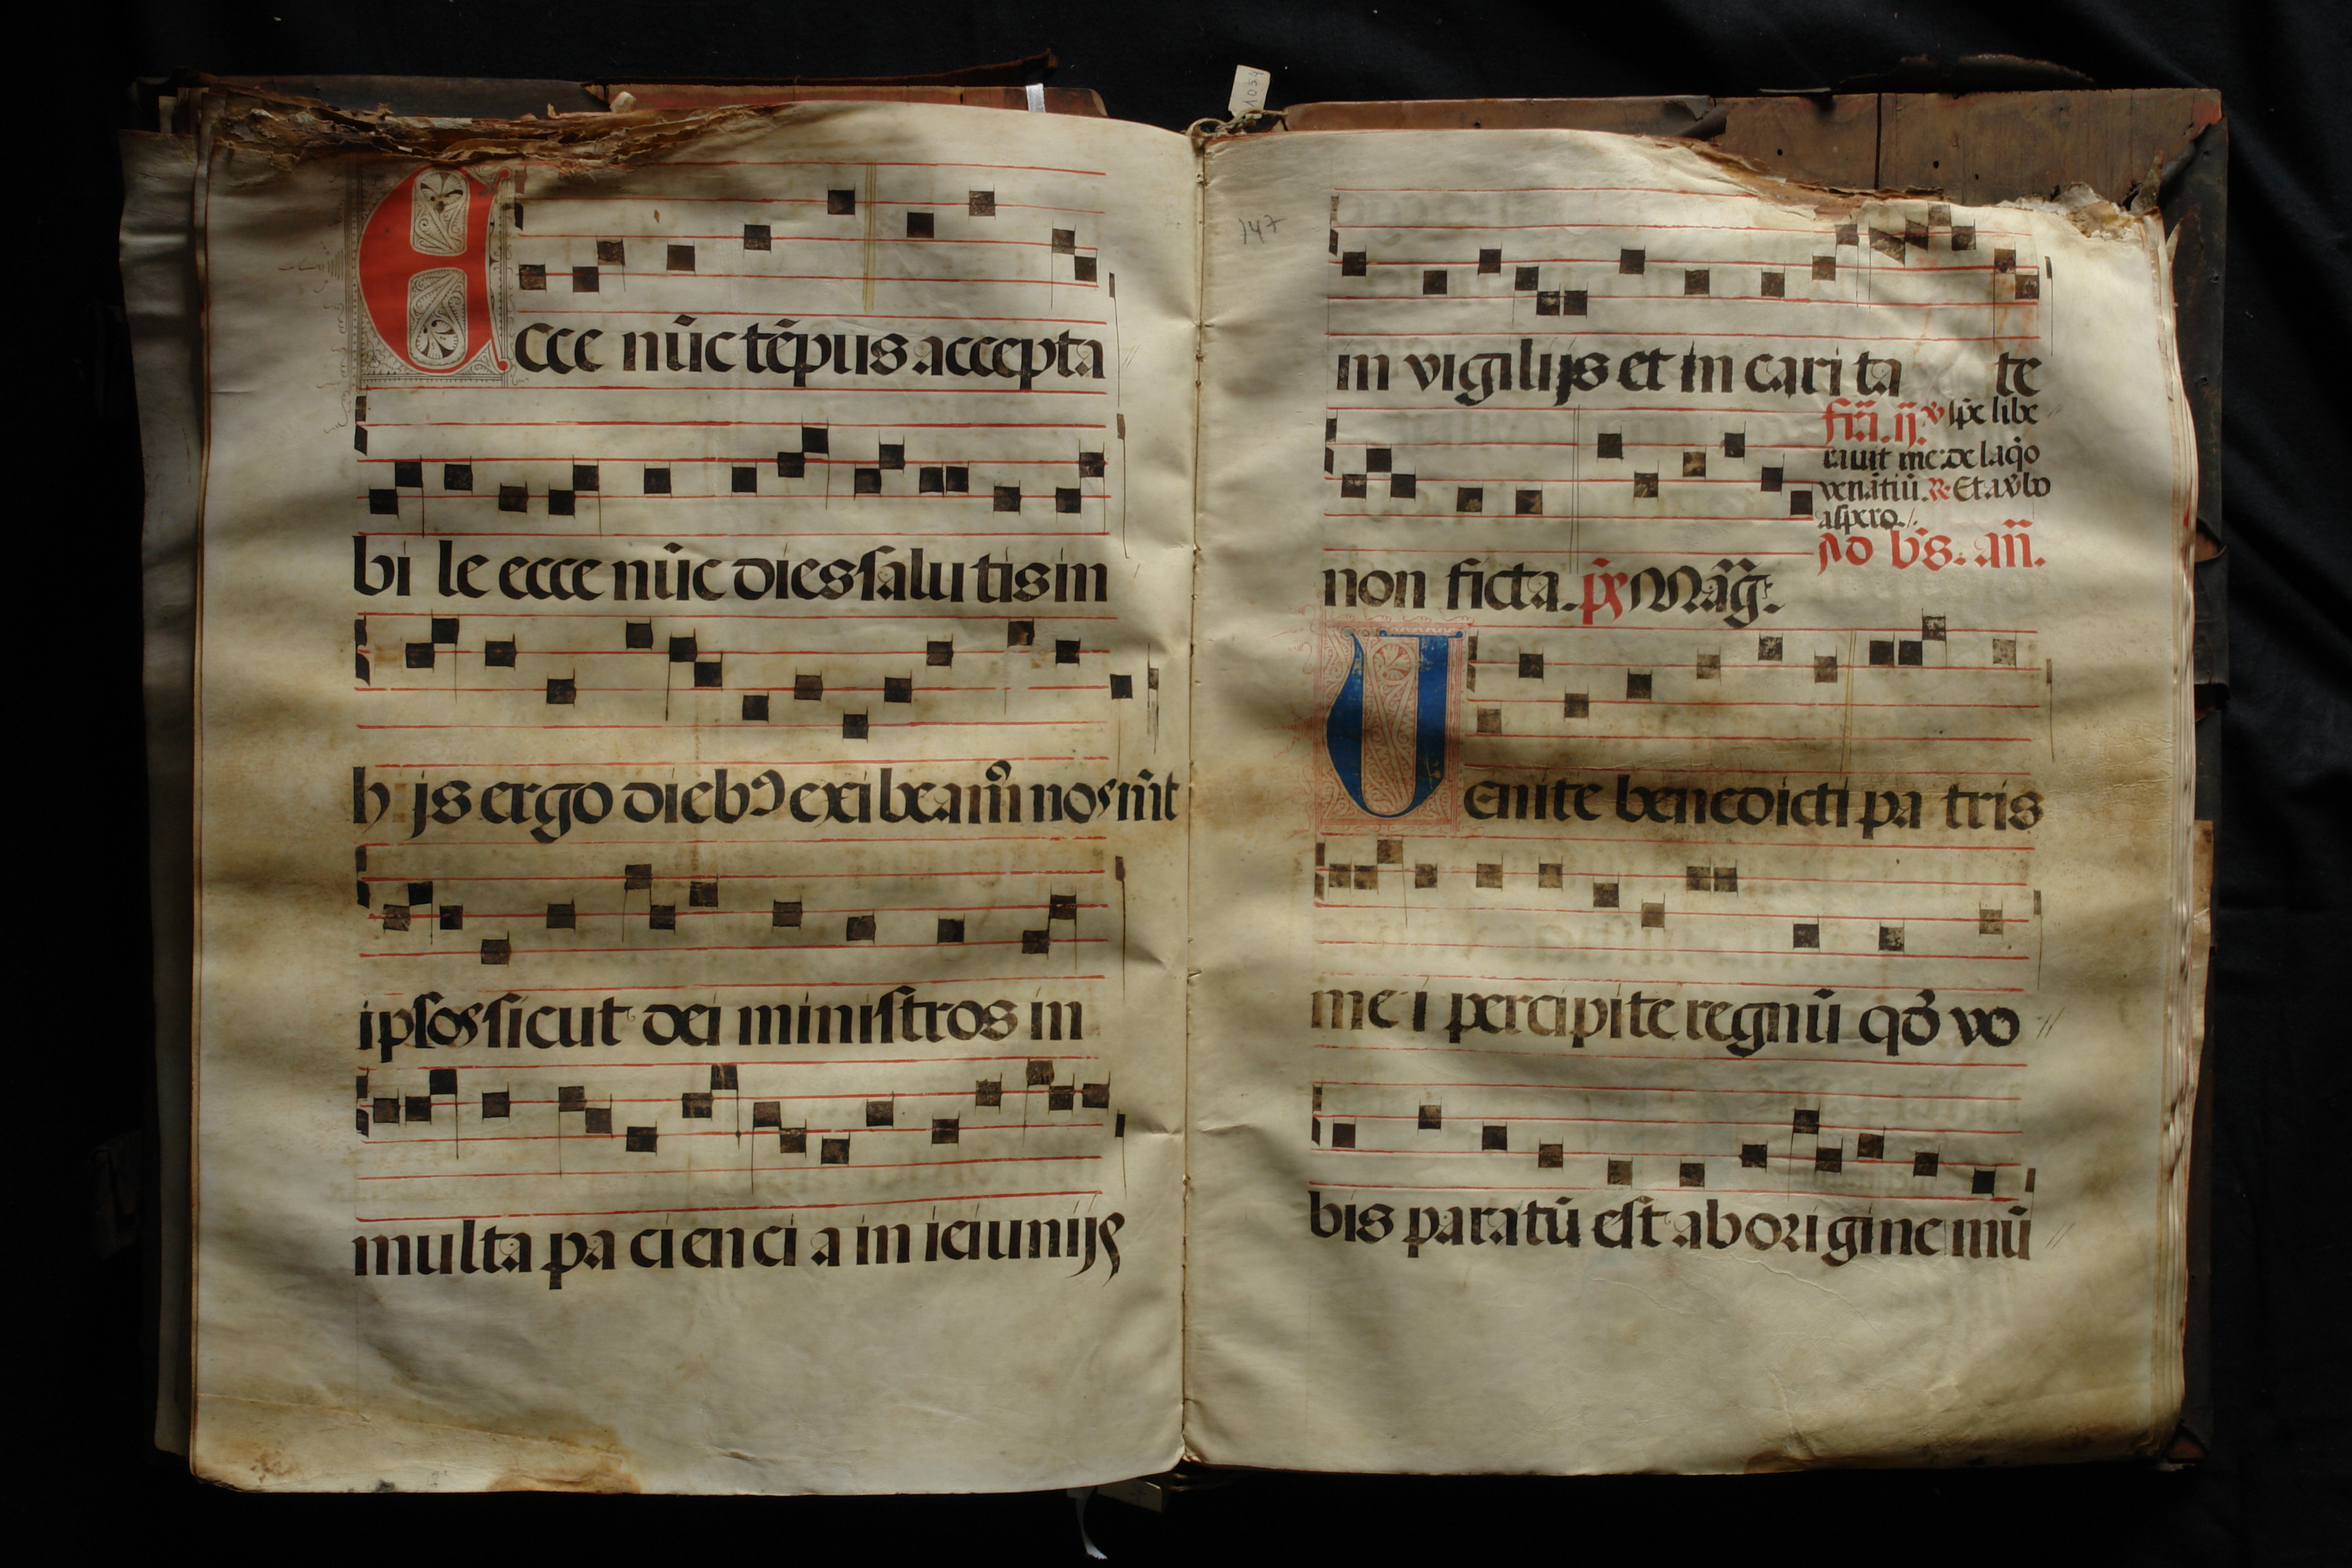 Ecce nūc tēpus accepta
bi le ecce nūc dies ſalu tis in
h ijs ergo diebꝰ exi beamꝰ noſmt
ipſos ſicut dei miniſtros in
multa pa cien ci a in ieiunijs
147
1054
in vigilijs et in cari ta te
fr̄ia. ij. ꝟ ip̄e libe
rauit me de laq̄o
venātiū. ℟. Et a v̄bo
aſpero.
Ad b̄s. añ.
non ficta. p̄s Māg.
Uenite benedicti pa tris
me i percipite regnū qd̄ vo
bis paratū eſt ab origine mū